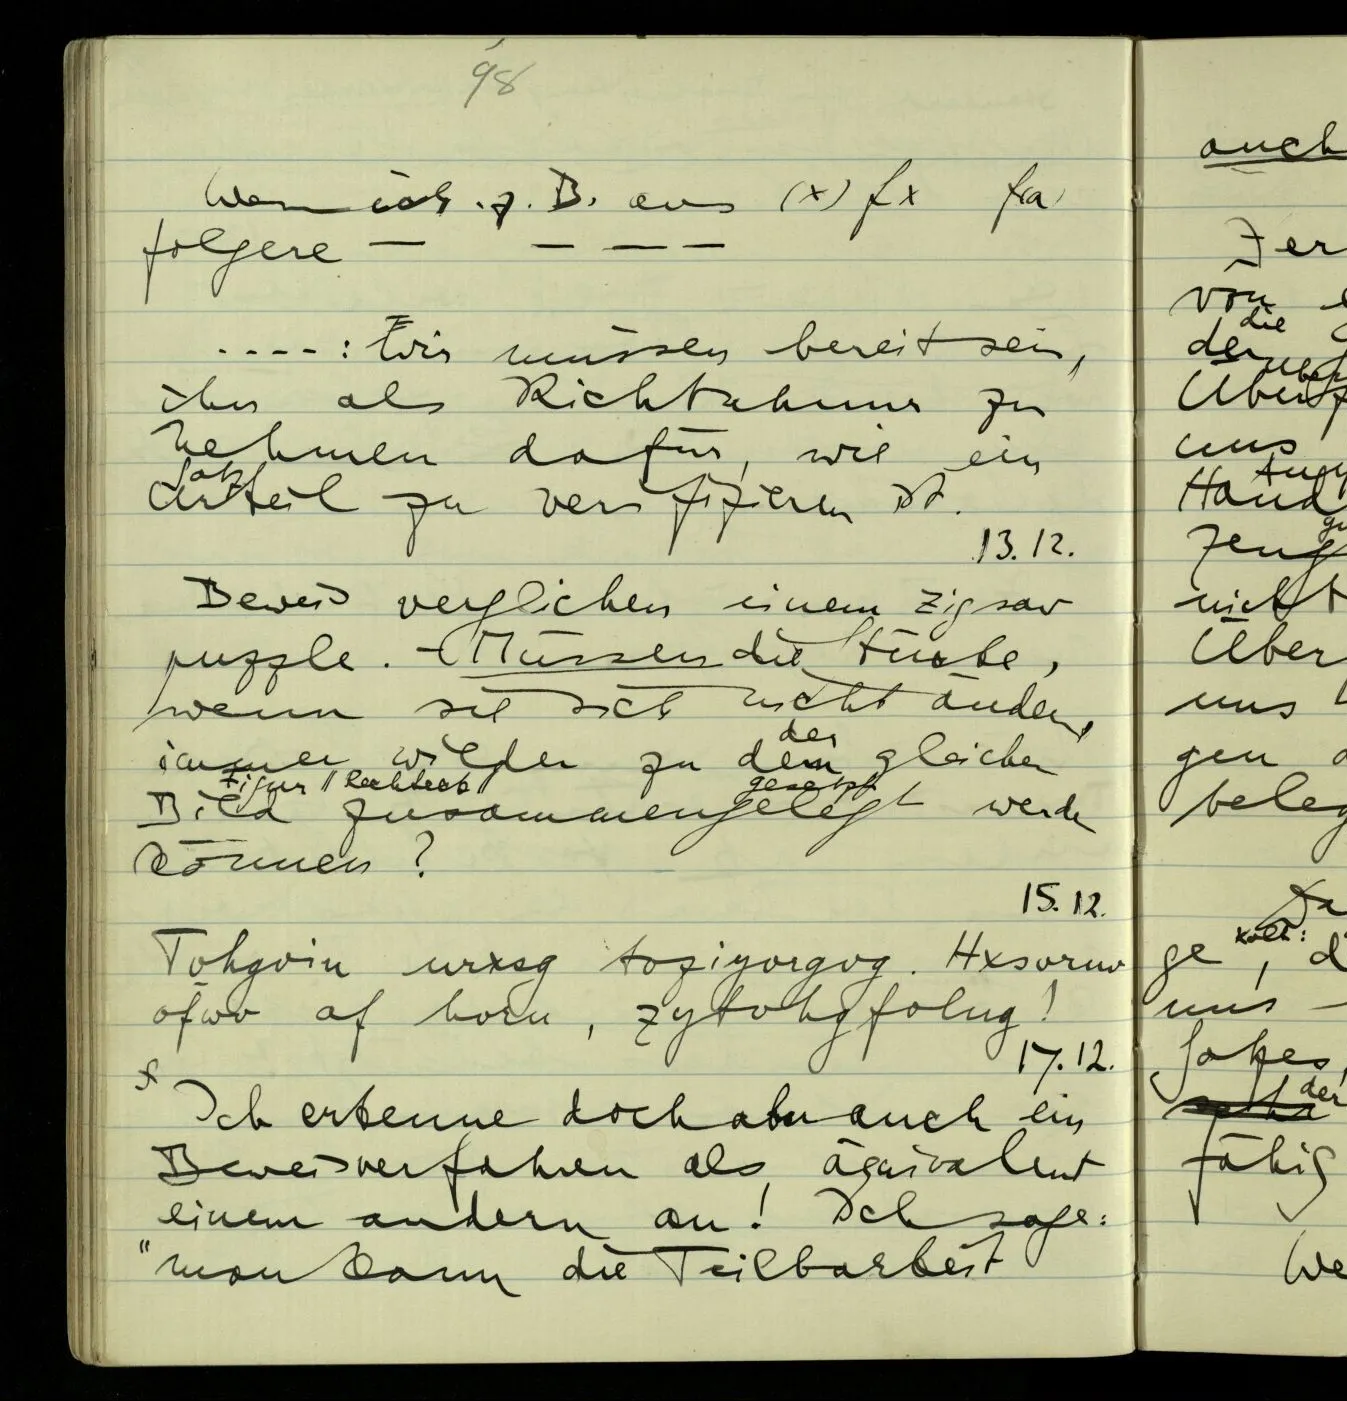 98
Wenn ich z.B. aus (x)fx fa
folgere — — — —
....: Wir müssen bereit sein,
ihn als Richtschnur zu
nehmen dafür, wie ein
Satz
Urteil zu verifizieren ist.
13.12.
Beweis verglichen einem Zigsaw
puzzle. – Müssen die Stücke,
wenn sie sich nicht ändern,
der
immer wieder zu dem gleichen
Figur // Rechteck gesetzt
Bild zusammengelegt werden
können?
15.12.
urxsg
ofwo af horu,
17.12.
Ich erkenne doch aber auch ein
Beweisverfahren als äquivalent
einem andern an! Ich sage:
"man kann die Teilbarkeit
auch
von
die
der
uns
nicht
Über
uns
gen
beleg
ge
uns –
Satzes,
der
fähig
We